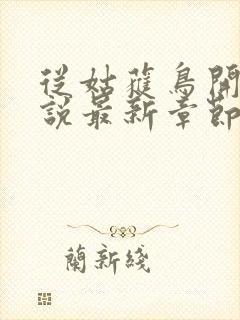 從姑蒦鳥開
說最新章節
蘭新綫